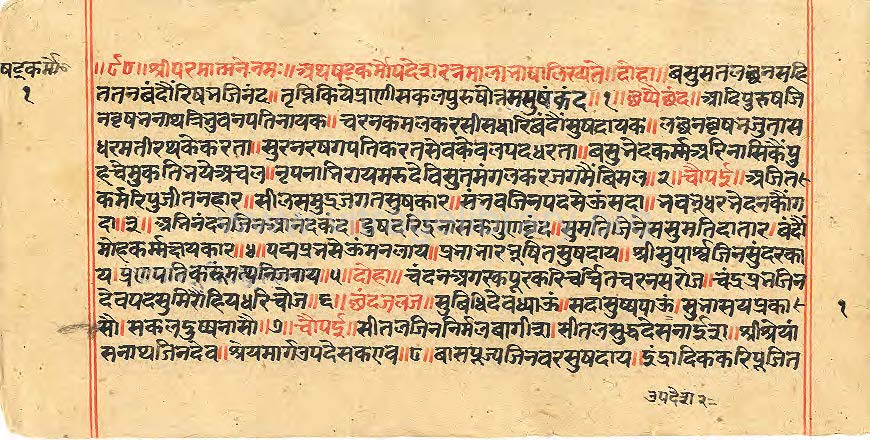 षट्कर्मो॰
१
॥९०॥ श्रीपरमात्मनेनमः॥ अथषट्कर्मोपदेशरत्नमालाभाषालिख्यते॥ दोहा॥ वसुमतलछनसहि
ततनबंदौरिषभजिनंद॥ तृप्तिकियेप्राणीसकलपुरुषोतमसुषकंद १॥ छप्पैछंद॥ आदिपुरुषजि
नवृषभनाथत्रिभुवनपतिनायक॥ चरनकमलकरसीसधारिबंदौंसुषदायक॥ लछनवृषभजुतास
धरमतीरथकेकरता॥ सुरनरषगपतिकरतसेवकेवलपदधरता॥ वसुभेदकर्मअरिनासिकैंपु
हचेमुकतिभयेअचल॥ नृपनाभिरायमरुदेविसुतमंगलकरजगमैविमल॥ २॥ चौपई॥ अजित
कर्मरिपुजीतनहार॥ सीलसमुद्रजगतसुषकार॥ संभवजिनपदसेऊंसदा॥ भवभैधरभेदनकौंग
दा॥ ३॥ अभिनंदनजिनआनंदकंद॥ दुषदरिद्रनासकगुणवृंद॥ सुमतिजिनेससुमतिदातार॥ वंदौं
मोहकर्मक्षयकार॥ ४॥ पद्मप्रभसेऊंमनलाय॥ प्रभाभारभूषितसुषदाय॥ श्रीसुपार्श्वजिनसुंदरका
य॥ दोहा॥ चंदनअगरकपूरकरिचर्चितचरनसरोज॥ चंद्रप्रभजिन
देवपदसुमिरौंहियधरिचोज॥ ६॥ सुविधिदेवध्याऊं॥ सदासुष्यपाऊं॥ सुभासयप्रका
सौ॥ सकलदुष्यनासौ॥ ७॥ चौपई॥ सीतलजिननिर्मलवागीश॥ श्रीश्रेयां
सनाथजिनदेव॥ श्रेयमार्गउपदेसकएव॥ ८॥ वासपूज्यजिनवरसुषदाय॥ इंद्रादिककरिपूजित
१
उपदेश२